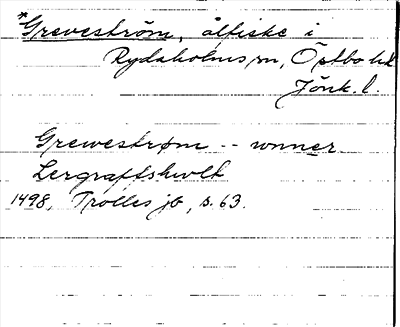 *Greveström, ålfiske i
Rydaholms sn, Östbo hd
Jönk. l.
Greweström -- wnner
Lergraffshwlt
1498, Trolles jb, s. 63.